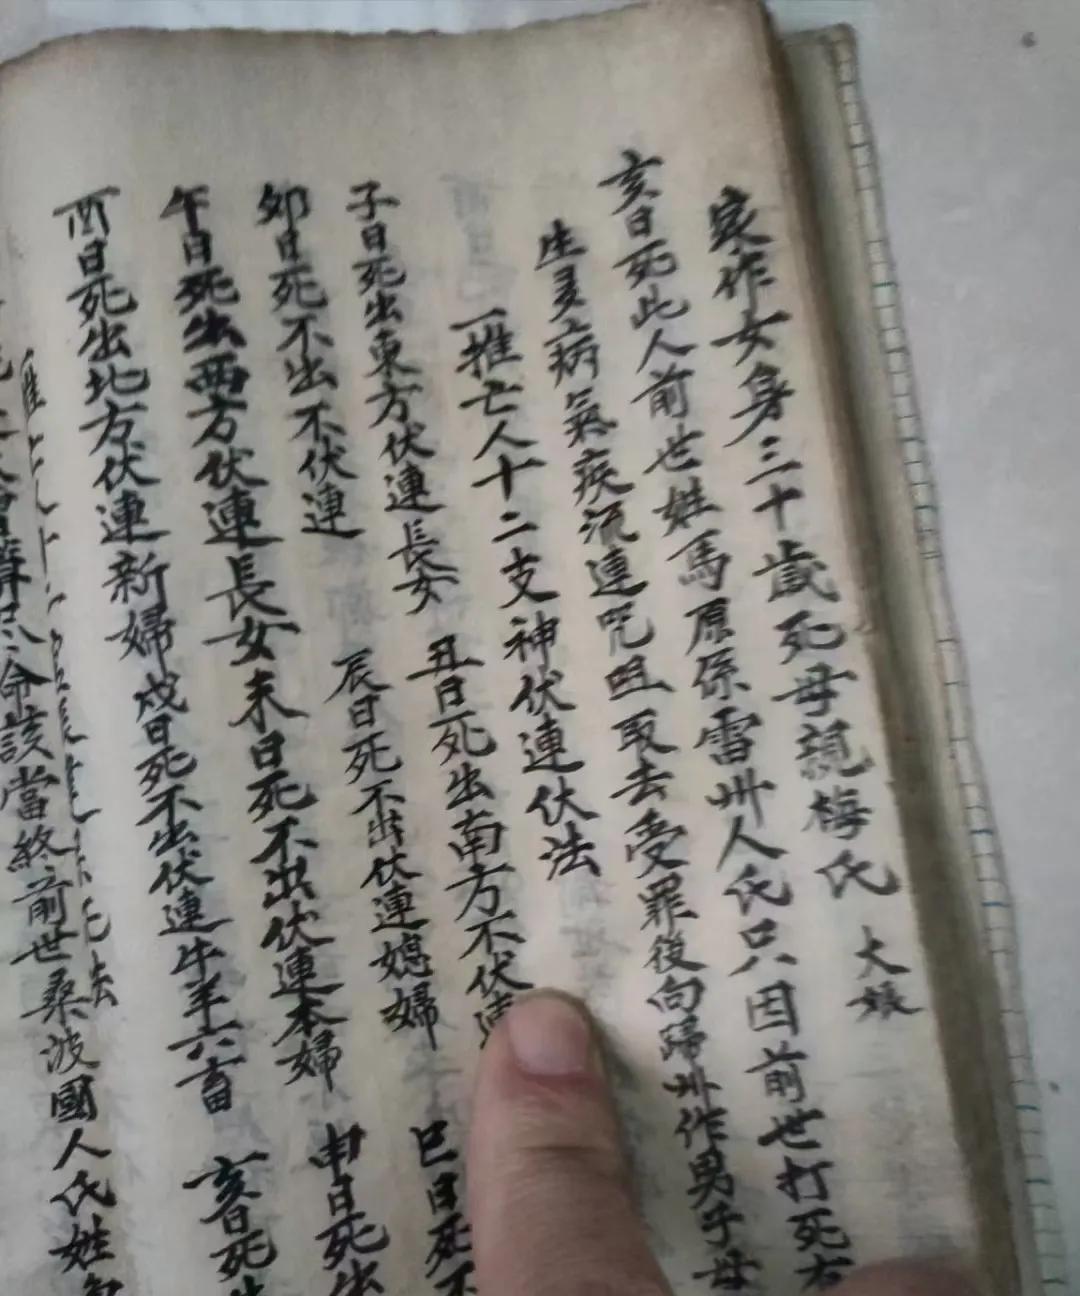 家作女身三十歲死母親梅氏 大娘
亥日死此人前世姓馬原係雷州人氏只因前世打死右
生灵病氣疾流連咒咀取去受罪後向歸州作男子母
一推亡人十二支神伏連伏法
子日死出東方伏連長女 丑日死出南方不伏連
卯日死不出不伏連 辰日死不出伏連媳婦 巳日死不
午日死出西方伏連長女未日死不出伏連本婦 申日死出
酉日死出北方伏連新婦戌日死不出伏連牛羊六畜 亥日死
命該當終前世桑波國人氏姓